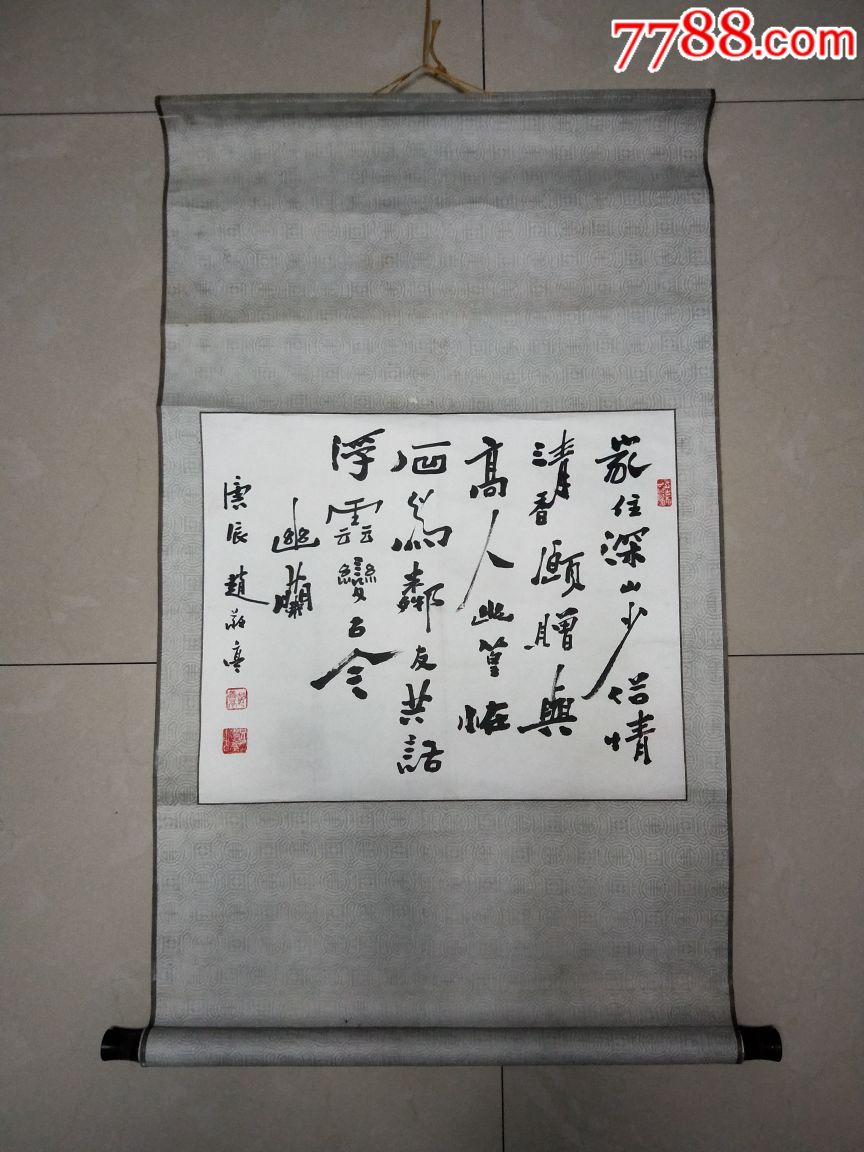 7788.com
家住深山少俗情
清香願贈與
高人幽篁怪
石為鄰友共話
浮雲變古今
幽蘭
庚辰 趙